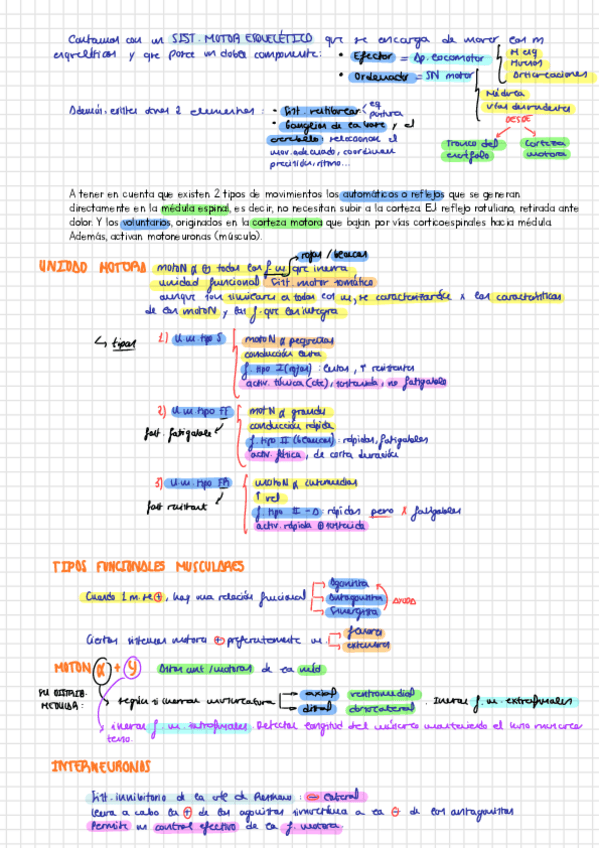 Contamos con un SIST. MOTOR ESQUELÉTICO que se encarga de mover los m
esqueléticos y que posee un doble componente:
• Efector = Ap. locomotor
M esq
Huesos
Articulaciones
• Ordenador = SN motor
Médula
Vías descendentes
DESDE
Tronco del encéfalo
Corteza motora
Además, existen otros 2 elementos:
• Sist. vestibular: eq postura
• Ganglios de la base y el
cerebelo relacionan el
mov. adecuado, coordinan
precisión, ritmo...
A tener en cuenta que existen 2 tipos de movimientos los automáticos o reflejos que se generan
directamente en la médula espinal, es decir, no necesitan subir a la corteza. EJ reflejo rotuliano, retirada ante
dolor. Y los voluntarios, originados en la corteza motora que bajan por vías corticoespinales hacia médula.
Además, activan motoneuronas (músculo).
rojas / blancas
UNIDAD MOTORA motoN α ⊕ todas las f. m que inerva
unidad funcional sist. motor somático
aunque son similares en todos los m, se caracterizarán x las características
de las motoN y las f. que las integra
↳ tipos
1) U.m tipo S
motoN α pequeñas
conducción lenta
f. tipo I (rojas): lentas, ↑ resistente
activ. tónica (cte), sostenida, no fatigable
2) U.m tipo FF
fast. fatigable
motN α grandes
conducción rápida
f. tipo II (blancas): rápidas, fatigables
activ. fásica, de corta duración
3) U.m tipo FR
fast resistant
motoN α intermedias
↑ vel
f. tipo II-a: rápidas pero x fatigables
activ. rápida ⊕ sostenida
TIPOS FUNCIONALES MUSCULARES
Cuando 1 m se ⊕, hay una relación funcional
Agonista
Antagonista
Sinergista
Ciertos sistemas motora ⊕ preferentemente m.
flexores
extensores
MOTON α + γ Astas ant/motoras de la méd
SU DISTRIB.
MEDULA:
según si inervan musculatura
axial ventromedial
distal dorsolateral
. Inerva f. m. extrafusales
inervan f. m. intrafusales. Detectar longitud del músculo manteniendo el tono muscular
INTERNEURONAS
Sist. inhibitorio de la cél de Renshaw: ⊖ lateral
lleva a cabo la ⊕ de los agonistas simultánea a la ⊖ de los antagonistas
Permite un control efectivo de la f. motora